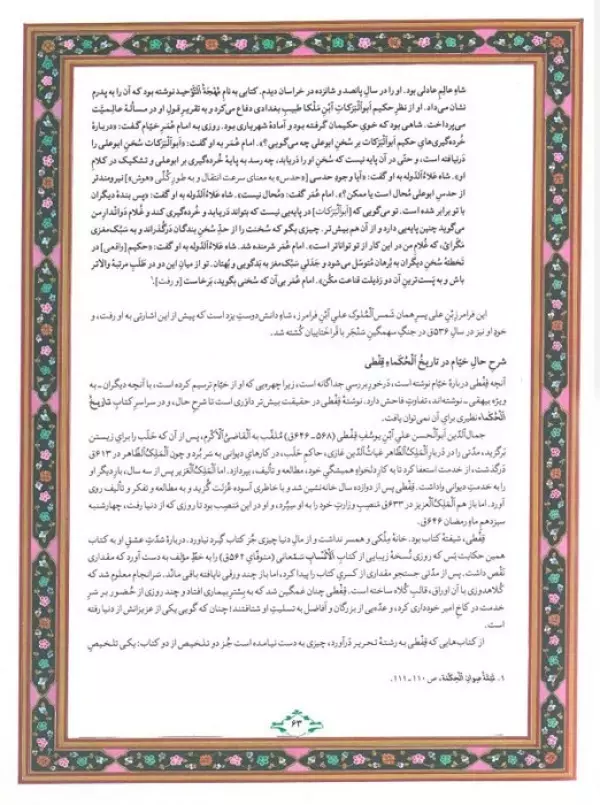 شاهِ عالِمِ عادلی بود. او را در سالِ پانصد و شانزده در خراسان دیدم. کتابی به نام مُهجَةُ التَّوْحید نوشته بود که آن را به پدرم
نشان می‌داد. او از نظرِ حکیم ابوالبَرَکاتِ اَبْنِ مَلْکا طبیبِ بغدادی دفاع می‌کرد و به تقریرِ قول او در مسألهٔ عالِمیَّت
می‌پرداخت. شاهی بود که خویِ حکیمان گرفته بود و آمادهٔ شهریاری بود. روزی به امام عُمَرِ خیّام گفت: «دربارهٔ
خُرده‌گیری‌هایِ حکیم ابوالبَرَکات بر سُخَنِ ابوعلی چه می‌گویی؟». امام عُمَر به او گفت: «ابوالبَرَکات سُخَنِ ابوعلی را
دَرنیافته است، و حتّی در آن پایه نیست که سُخَنِ او را دَریابد، چه رسد به پایهٔ خُرده‌گیری بر ابوعلی و تشکیک در کلامِ
او». شاه عَلاءُالدَّوله به او گفت: «آیا وجودِ حدسی [«حدس» به معنای سرعت انتقال و به طورِ کُلّی «هوش»] نیرومندتر
از حدسِ ابوعلی مُحال است یا ممکن؟». امام عُمَر گفت: «مُحال نیست». شاه عَلاءُالدَّوله به او گفت: «پس بندهٔ دیگران
با تو برابر شده است. تو می‌گویی که [ابوالبَرَکات] در پایه‌یی نیست که بتواند دَریابد و خُرده‌گیری کند و غُلامِ دَواتدارِ من
می‌گوید چنین پایه‌یی دارد و از آن هم بیش‌تر. چیزی بگو که سُخَنت را از حدِّ سُخَنِ بندگان دَرگُذراند و به سَبُک‌مغزی
مَگَرای، که غُلامِ من در این کار از تو تواناتر است». امام عُمَر شرمنده شد. شاه عَلاءُالدَّوله به او گفت: «حکیم [واقعی] در
تخطئهٔ سُخَنِ دیگران به بُرهان مُتوسّل می‌شود و جَدَلیِ سَبُک‌مغز به بَدگویی و بُهتان. تو از میانِ این دو در طَلَبِ مرتبهٔ والاتر
باش و به پَست‌ترینِ آن دو رذیلت قناعت مکُن». امام عُمَر بی‌آن که سُخَنی بگوید، بَرخاست [و رفت].¹
این فرامرزِ بْنِ علی پسرِ همان شَمس‌المُلوک علیِ اَبْنِ فرامرز، شاهِ دانش‌دوستِ یزد است که پیش از این اشارتی به او رفت، و
خودِ او نیز در سالِ ۵۳۶ق در جنگِ سهمگینِ سَنْجَر با قَراخَتاییان کُشته شد.
شرحِ حالِ خیّام در تاریخُ الْحُکَماءِ قِفْطی
آنچه قِفْطی دربارهٔ خیّام نوشته است، دَرخورِ بررسیِ جداگانه است، زیرا چهره‌یی که او از خیّام ترسیم کرده است، با آنچه دیگران ـ به
ویژه بیهقی ـ نوشته‌اند، تفاوتِ فاحش دارد. نوشتهٔ قِفْطی در حقیقت بیش‌تر داوَری است تا شرحِ حال، و در سراسرِ کتابِ تاریخُ
الْحُکَماء نظیری برای آن نمی‌توان یافت.
جمال‌الدّین ابوالْحسن علیِ اَبْنِ یوسُفِ قِفْطی (۵۶۸ـ۶۴۶ق) مُلَقَّب به اَلقاضِی الْأَکْرَم، پس از آن که حَلَب را برایِ زیستن
برگزید، مدّتی را در دَربارِ اَلمَلِکُ الظّاهر غیاثُ الدّین غازی، حاکمِ حَلَب، در کارهایِ دیوانی به سَر بُرد و چون اَلمَلِکُ الظّاهر در ۶۱۳ق
دَرگذشت، از خدمت استعفا کرد تا به کارِ دلخواهِ همیشگیِ خود، مطالعه و تألیف، بپردازد. اما اَلمَلِکُ الْعَزیز پس از سه سال، باردیگر او
را به خدمتِ دیوانی واداشت. قِفْطی پس از دوازده سال خانه‌نشین شد و با خاطری آسوده عُزلت گُزید و به مطالعه و تفکر و تألیف روی
آورد. اما باز هم اَلمَلِکُ الْعَزیز در ۶۳۳ق مَنصِبِ وزارتِ خود را به او سپُرد، و او در این مَنصِب بود تا روزی که از دنیا رفت، چهارشنبه
سیزدهمِ ماهِ رمضانِ ۶۴۶ق.
قِفْطی، شیفتهٔ کتاب بود. خانهٔ مِلْکی و همسر نداشت و از مالِ دنیا چیزی جُز کتاب گِرد نیاورد. دربارهٔ شدّتِ عشقِ او به کتاب
همین حکایت بَس که روزی نُسخهٔ زیبایی از کتابِ اَلْأَنْسابِ سَمْعانی (متوفّایِ ۵۶۲ق) را به خطِّ مؤلف به دست آورد که مقداری
نَقص داشت. پس از مدّتی جستجو مقداری از کسریِ کتاب را پیدا کرد، اما باز چند وَرقی نایافته باقی مانْد. سَرانجام معلوم شد که
کُلاهدوزی با آن اوراق، قالبِ کُلاه ساخته است. قِفْطی چنان غمگین شد که به بسترِ بیماری افتاد و چند روزی از حُضور بر سَرِ
خدمت در کاخِ امیر خودداری کرد، و عدّه‌یی از بزرگان و اَفاضل به تسلیتِ او شتافتند؛ چنان که گویی یکی از عزیزانش از دنیا رفته
است.
از کتاب‌هایی که قِفْطی به رشتهٔ تحریر دَرآورد، چیزی به دست نیامده است جُز دو تلخیص از دو کتاب: یکی تلخیصِ
۱. تَتِمَّةُ صِوانِ الْحِکْمَة، ص ۱۱۰ـ۱۱۱.
۶۳